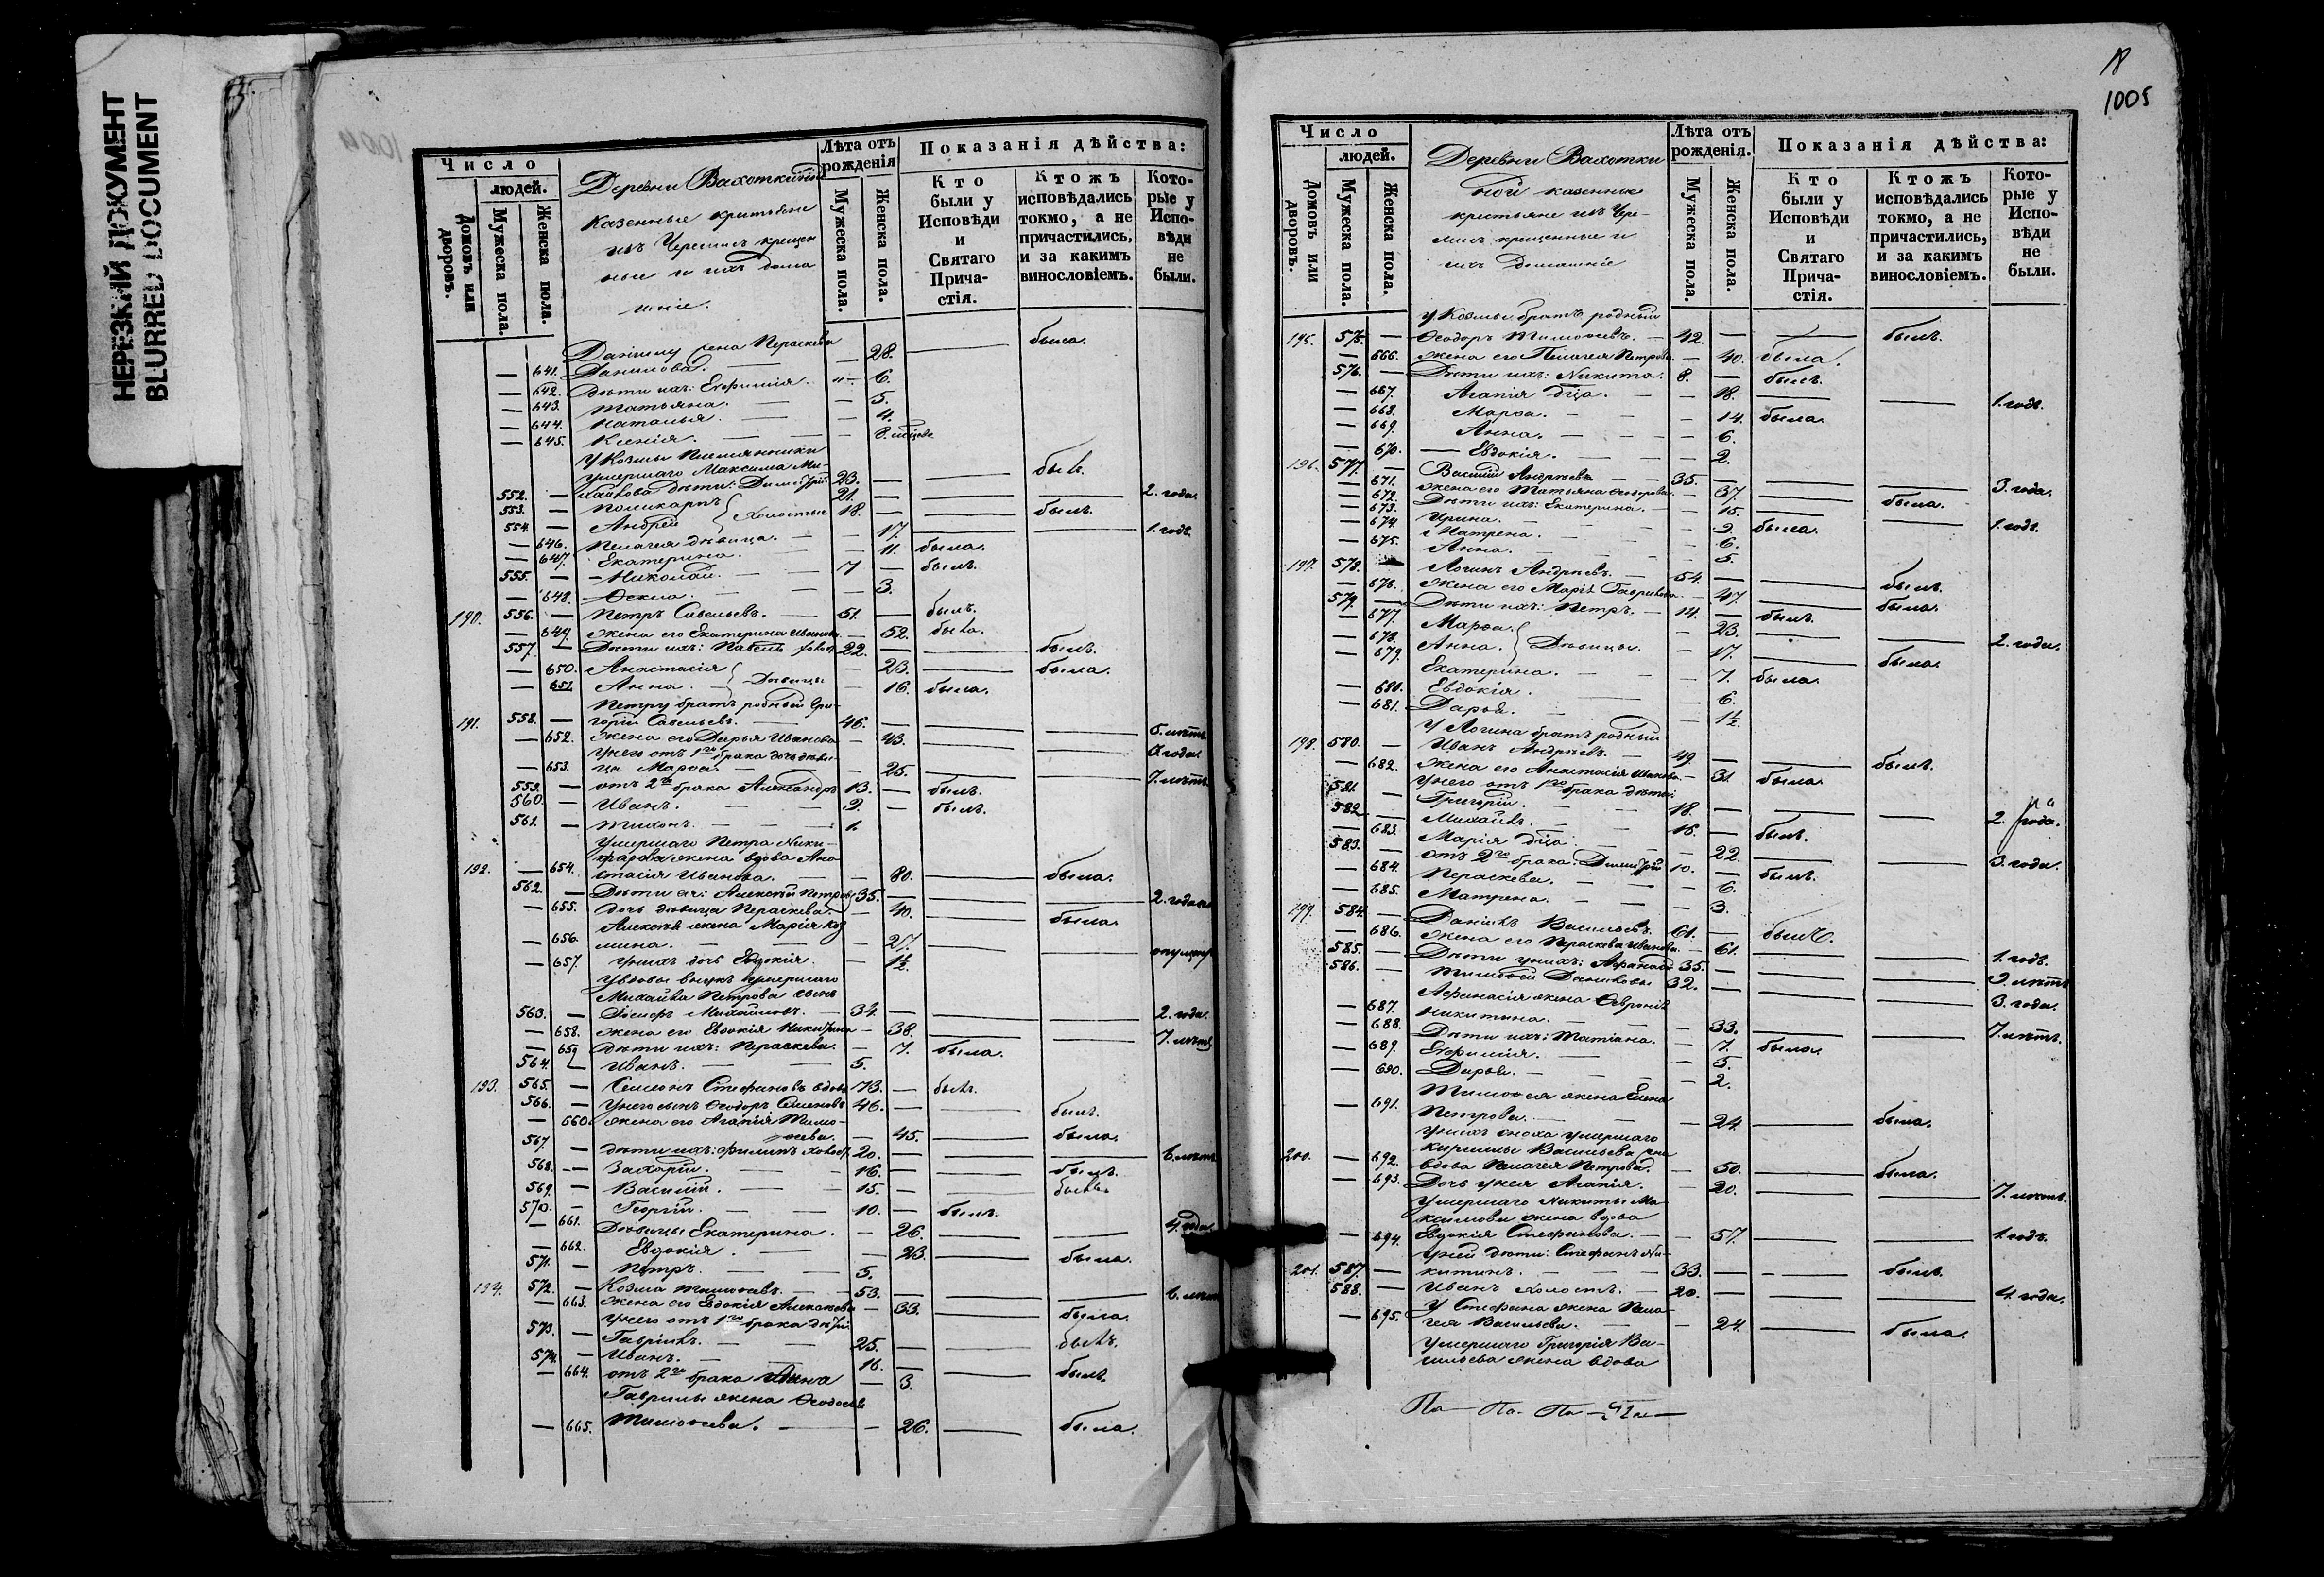 НЕРЕЗКИЙ ДОКУМЕНТ
BLURRED DOCUMENT
Число
людей.
Домовъ или дворовъ.
Мужеска пола.
Женска пола.
Деревни Вахоткиной
казенные крестьяне
изъ Черемисъ крещен
ные и ихъ дома
шніе.
Лѣта отъ рожденія
Мужеска пола.
Женска пола.
Показанія дѣйства:
Кто были у Исповѣди и Святаго Прича-стія.
Ктожъ исповѣдались токмо, а не причастились, и за какимъ винословіемъ.
Кото-рые у Испо-вѣди не были.
Даніилу жена Параскева была.
— 641. Данилова. — 28.
— 642. Дѣти ихъ: Евфимія. 6.
— 643. Татьяна. — 5.
— 644. Наталья. — 4.
— 645. Ксенія. — 8. мѣсяц.
У Козмы племянники
умершаго Максима Ми-
552. — хайлова дѣти: Димитрій 23. — былъ.
553. — Поликарпъ 21. — 2. года.
554. — Андрей Холостые 18. — былъ.
— 646. Пелагея дѣвица. — 17. 1. годъ.
— 647. Екатерина. — 11. была.
555. — Николай. 7 — былъ.
— 648. Фекла. — 3.
190. 556. — Петръ Савельевъ. 51. — былъ.
— 649. жена его Екатерина Иванова. — 52. была.
557. — Дѣти ихъ: Павелъ холост 22. — былъ.
— 650. Анастасія — 23. была.
— 651. Анна. Дѣвицы — 16. была.
Петру братъ родный Гри-
191. 558. — горій Савельевъ. 46. — 5. лѣтъ
— 652. Жена его Дарья Иванова — 43. года.
у него отъ 1го брака дочь дѣви-
— 653. ца Марѳа. — 25. 7. лѣтъ.
559. — отъ 2го брака Александръ 13. — былъ.
560. — Иванъ. 9. — былъ.
561. — Тихонъ. 1.
Умершаго Петра Ники-
форова жена вдова Ана
192. — 654. стасія Иванова. — 80. была.
562. — Дѣти ея: Алексѣй Петровъ 35. — 2. года
— 655. дочь дѣвица Параскева. — 40. была.
Алексѣя жена Марія Коз
— 656. мина. — 27.
— 657. у нихъ дочь Евдокія. — 1½
У вдовы внукъ умершаго
Михайла Петрова сынъ
563. — Михайловъ. — 34. — 2. года.
— 658. жена его Евдокія Никитина — 38. 7. лѣтъ
— 659 дѣти ихъ: Параскева. — 7. была.
564. Иванъ. 5.
193. 565. — Семіонъ Стефановъ вдовъ 73. — былъ.
566. — У него сынъ Ѳеодоръ Семеновъ 46. — былъ.
— 660. жена его Агапія Тимо-
ѳеева. — 45. была.
567. — дѣти ихъ: Филипъ холост. 20. — 6. лѣтъ
568. — Захарій. 16. — былъ.
569. — Василій. 15. — былъ.
570. — Георгій. 10. — былъ.
— 661. Дѣвицы Екатерина. — 26. 4. года.
— 662. Евдокія. — 23. была.
571. — Петръ. 5.
194. 572. — Козма Тимоѳеевъ. 53. — 6. лѣтъ
— 663. жена его Евдокія Алексѣева — 33. была.
у него отъ 1го брака дѣти
573. — Гавріилъ. 25. — былъ.
574. — Иванъ. 16. — былъ.
— 664. отъ 2го брака Анна — 3.
Гаврилы жена Ѳеодосія
— 665. Тимоѳеева. — 26. была.
18
1005
Число
людей.
Домовъ или дворовъ.
Мужеска пола.
Женска пола.
Деревни Вахотки
ной казенные
крестьяне изъ Чере-
мисъ крещенные и
ихъ домашніе
Лѣта отъ рожденія.
Мужеска пола.
Женска пола.
Показанія дѣйства:
Кто были у Исповѣди и Святаго Прича-стія.
Ктожъ исповѣдались токмо, а не причастились, и за какимъ винословіемъ.
Кото-рые у Испо-вѣди не были.
у Козмы братъ родный
195. 575. — Ѳеодоръ Тимоѳеевъ. — 42. — былъ.
— 666. жена его Пелагея Петрова. — 40. была.
576. — Дѣти ихъ: Никита. 8. — былъ.
— 667. Агапія дѣца. — 18. 1. годъ.
— 668. Марѳа. — 14. была.
— 669. Анна. — 6.
— 670. Евдокія. — 2.
196. 577. — Василій Андреевъ 35. — 3. года.
— 671. жена его Татьяна Ѳеодорова. — 37. была.
— 672. Дѣти ихъ: Екатерина. — 15. 1. годъ.
— 673. Ирина. — 9. была.
— 674. Матрена. — 6.
— 675. Анна. — 5.
197. 578. — Логинъ Андреевъ. — 54. — былъ.
— 676. жена его Марія Гаврилова — 47. была.
579. — Дѣти ихъ: Петръ. — 14. — былъ.
— 677. Марѳа. — 23. 2. года.
— 678. Анна. Дѣвицы. — 17. была.
— 679. Екатерина. — 7. была.
— 680. Евдокія. — 6.
— 681. Дарья. — 1½
У Логина братъ родный
198. 580. — Иванъ Андреевъ. — 49. — былъ.
— 682. жена его Анастасія Иванова — 31. была.
У него отъ 1го брака дѣти:
581. — Григорій. 18. — 2. года.
582. — Михайлъ. 16. — былъ.
— 683. Марія дѣца. — 22. 3. года.
583. — отъ 2го брака: Димитрій 10. — былъ.
— 684. Параскева. — 6.
— 685. Матрена. — 3.
199. 584. — Даніилъ Васильевъ. 61. — былъ.
— 686. жена его Параскева Иванова. — 61. 1. годъ.
585. — Дѣти у нихъ: Афанасій 35. — 9. лѣтъ
586. — Тимоѳей Даниловы 32. — 3. года.
Афанасія жена Февронія
— 687. Никитина. — 33. 7. лѣтъ.
— 688. Дѣти ихъ: Татіана. — 7. была.
— 689. Евфимія. — 5.
— 690. Дарья. — 2.
Тимоѳея жена Елена
— 691. Петрова. — 24. была.
у нихъ сноха умершаго
Кирилы Васильева жена
200. — 692. вдова Пелагея Петрова. — 50. была.
— 693. Дочь у нея Агапія. — 20. 7. лѣтъ.
Умершаго Никиты Ма-
ксимова жена вдова
— 694. Евдокія Стефанова. — 57. 1. годъ.
У ней дѣти: Стефанъ Ни-
201. 587. — китинъ. 33. — былъ.
588. — Иванъ холостъ. — 20. — 4. года.
У Стефана жена Пела-
— 695. гея Васильева. — 24. была.
Умершаго Григорія Ва-
сильева жена вдова